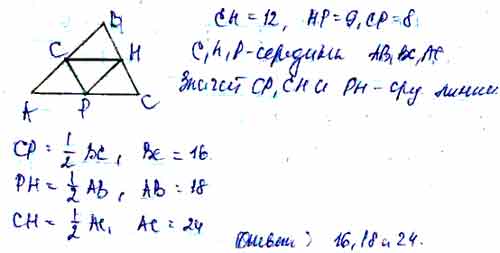 CH = 12, HP = 9, CP = 8
C, H, P - середины AB, BC, AC.
Значит CP, CH и PH - сред линии
B
C
H
A
P
C
CP = 1/2 BC, BC = 16
PH = 1/2 AB, AB = 18
CH = 1/2 AC, AC = 24
Ответ: 16, 18 и 24.